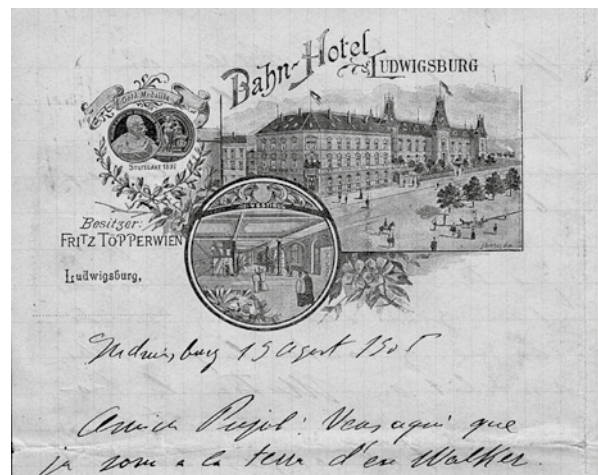 Bahn-Hotel
LUDWIGSBURG
Gold. Medaille
STUTTGART 1896
Besitzer:
FRITZ TÖPPERWIEN
Ludwigsburg,
VESTIBÜL
Ludwigsburg 19 agost 1905
Amich Pujol: Veus aquí que
ja som a la terra d'en Walker.